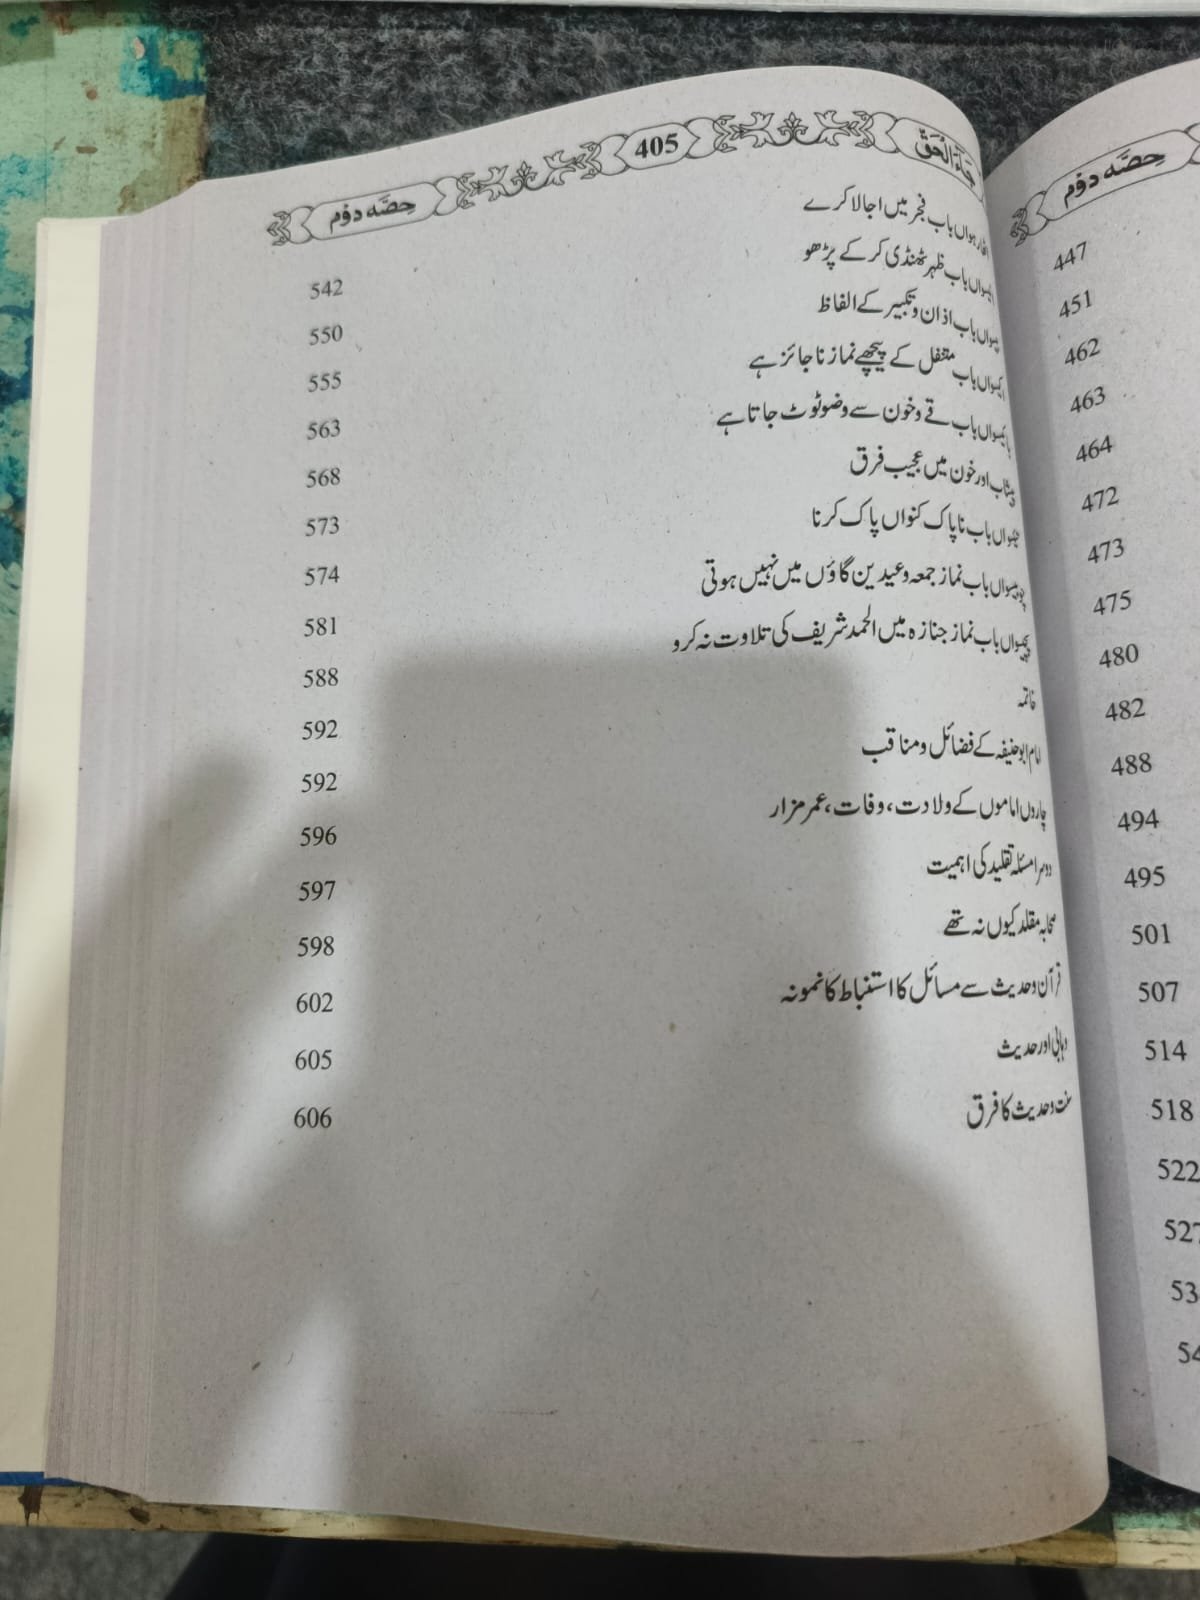 جَآءَ الْحَقّ 405 حِصّه دوُم
اٹھارہواں باب فجر میں اجالا کرے 542
انیسواں باب ظہر ٹھنڈی کر کے پڑھو 550
بیسواں باب اذان و تکبیر کے الفاظ 555
اکیسواں باب متنفل کے پیچھے نماز ناجائز ہے 563
بائیسواں باب قے و خون سے وضو ٹوٹ جاتا ہے 568
پیشاب اور خون میں عجیب فرق 573
تیئیسواں باب ناپاک کنواں پاک کرنا 574
چوبیسواں باب نماز جمعہ و عیدین گاؤں میں نہیں ہوتی 581
پچیسواں باب نماز جنازہ میں الحمد شریف کی تلاوت نہ کرو 588
خاتمہ 592
امام ابوحنیفہ کے فضائل و مناقب 592
چاروں اماموں کے ولادت، وفات، عمر مزار 596
دوسرا مسئلہ تقلید کی اہمیت 597
صحابہ مقلد کیوں نہ تھے 598
قرآن وحدیث سے مسائل کا استنباط کا نمونہ 602
وہابی اور حدیث 605
سنت وحدیث کا فرق 606
حِصّه دوُم
447
451
462
463
464
472
473
475
480
482
488
494
495
501
507
514
518
522
527